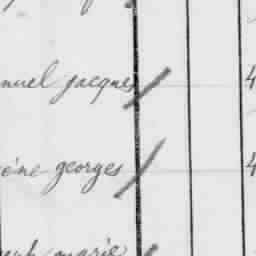 nuel jacques 4
ène georges 4
marie